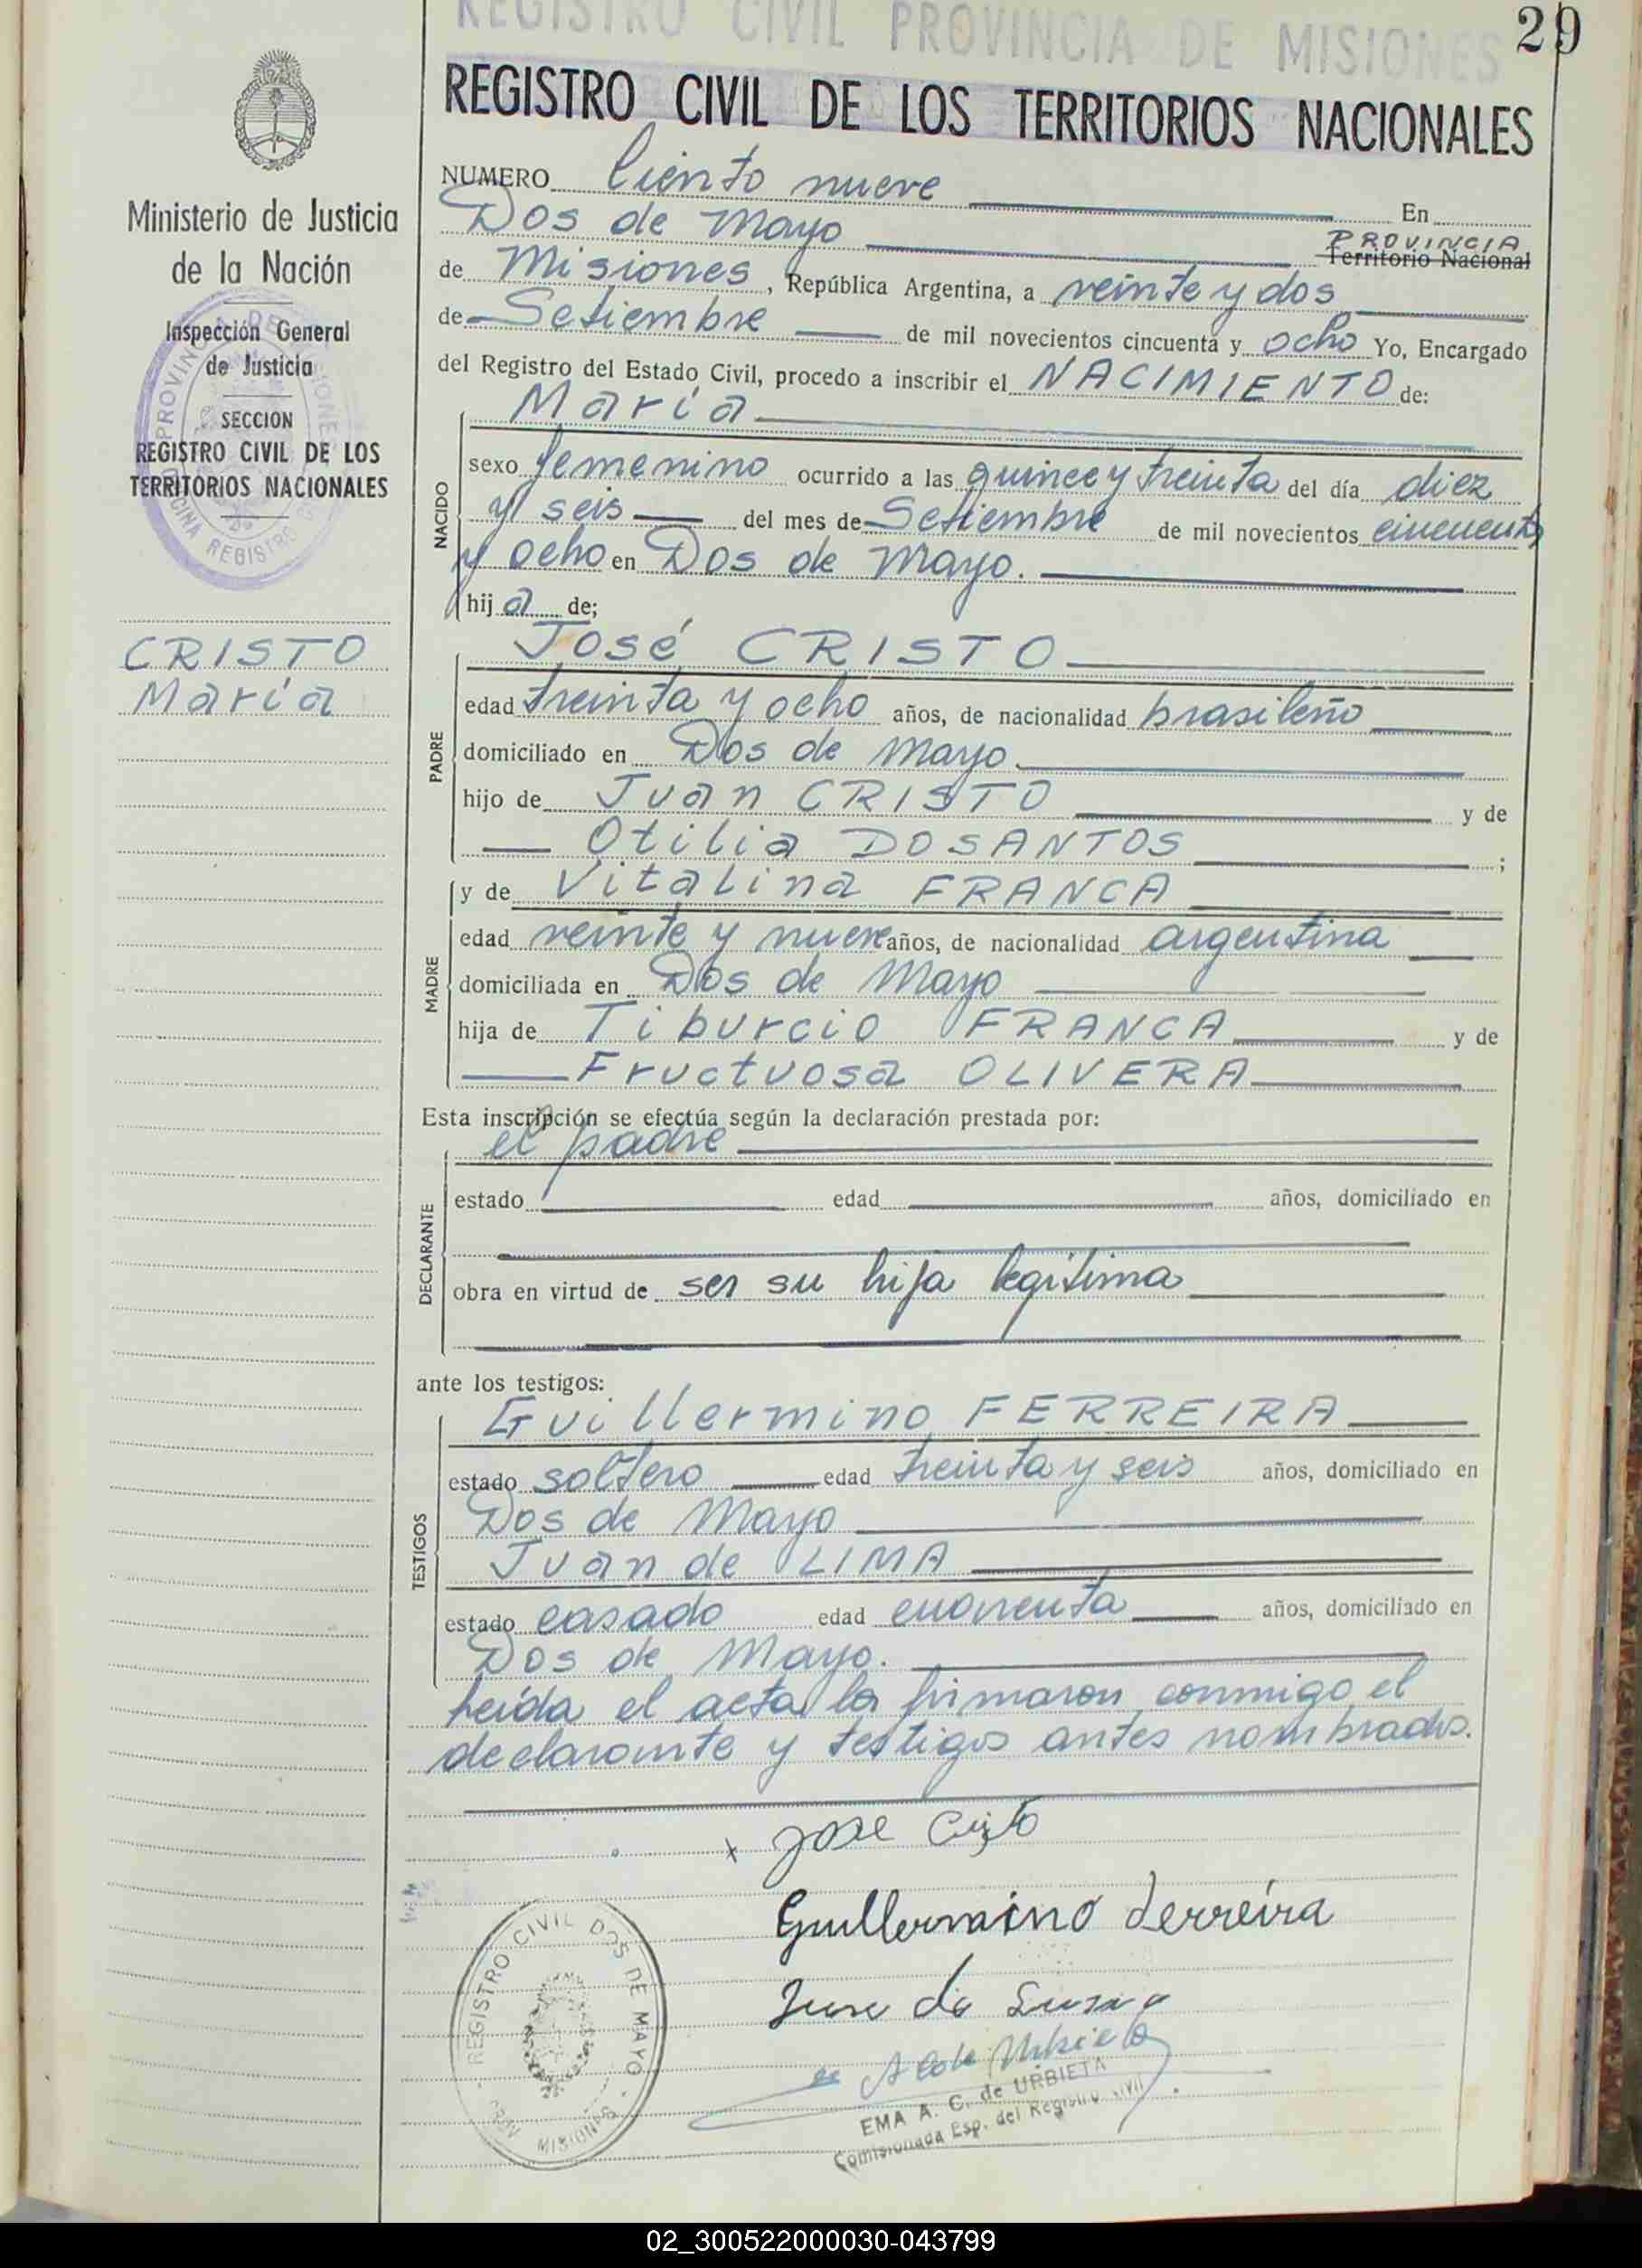 REGISTRO CIVIL PROVINCIA DE MISIONES
29
REGISTRO CIVIL DE LOS TERRITORIOS NACIONALES
Ministerio de Justicia
de la Nación
Inspección General
de Justicia
SECCION
REGISTRO CIVIL DE LOS
TERRITORIOS NACIONALES
CRISTO
María
NUMERO Ciento nueve En
Dos de Mayo PROVINCIA
Territorio Nacional
de Misiones, República Argentina, a veinte y dos
de Setiembre de mil novecientos cincuenta y ocho Yo, Encargado
del Registro del Estado Civil, procedo a inscribir el NACIMIENTO de:
María
NACIDO
sexo femenino ocurrido a las quince y treinta del día diez
y seis del mes de Setiembre de mil novecientos cincuenta
y ocho en Dos de Mayo.
hija de;
José CRISTO
PADRE
edad treinta y ocho años, de nacionalidad brasileño
domiciliado en Dos de Mayo
hijo de Juan CRISTO y de
Otilia DOSANTOS ;
y de Vitalina FRANCA
MADRE
edad veinte y nueve años, de nacionalidad argentina
domiciliada en Dos de Mayo
hija de Tiburcio FRANCA y de
Fructuosa OLIVERA
Esta inscripción se efectúa según la declaración prestada por:
el padre
DECLARANTE
estado edad años, domiciliado en
obra en virtud de ser su hija legítima
ante los testigos:
Guillermino FERREIRA
TESTIGOS
estado soltero edad treinta y seis años, domiciliado en
Dos de Mayo
Juan de LIMA
estado casado edad cuarenta años, domiciliado en
Dos de Mayo.
Leída el acta la firmaron conmigo el
declarante y testigos antes nombrados.
x jose Cristo
Guillermino Ferreira
REGISTRO CIVIL DOS DE MAYO
MISIONES
EMA A. C. de URBIETA
Comisionada Esp. del Registro Civil
02_300522000030-043799